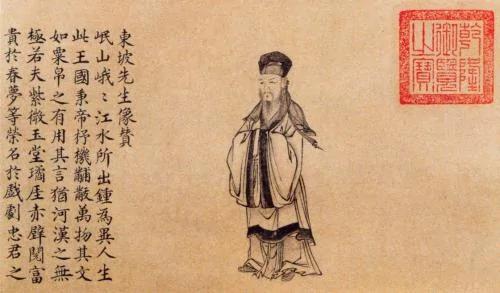 東坡先生像贊
岷山峨〻江水所出鍾為異人生
此王國秉帝杼機黼黻萬物其文
如粟帛之有用其言猶河漢之無
極若夫紫微玉堂瓊厓赤壁閱富
貴於春夢等榮名於戲劇忠君之
乾隆
御覽
之寶